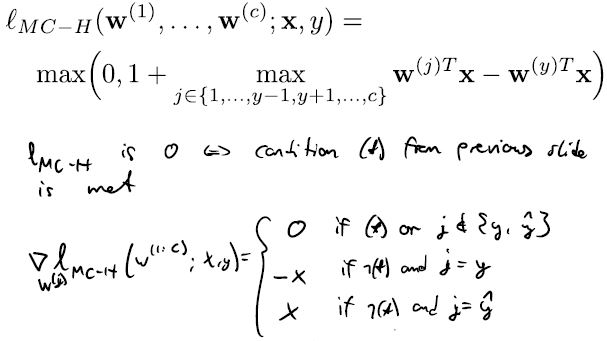 ℓ_{MC−H}(w^{(1)}, . . . , w^{(c)}; x, y) =
max(0, 1 + max_{j∈{1,...,y−1,y+1,...,c}} w^{(j)T}x − w^{(y)T}x)
ℓ_{MC-H} is 0 ⇔ condition (*) from previous slide
is met
∇_{w^{(j)}} ℓ_{MC-H}(w^{(1:c)}; x,y) = { 0 if (*) or j ∉ {y, ŷ}
−x if ¬(*) and j = y
x if ¬(*) and j = ŷ